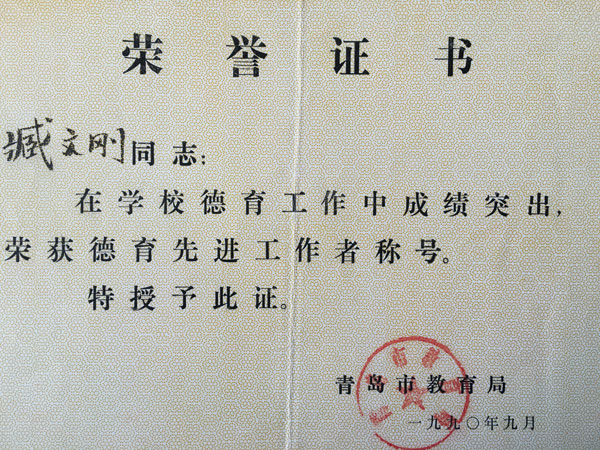 荣誉证书
臧文刚同志:
在学校德育工作中成绩突出,
荣获德育先进工作者称号。
特授予此证。
青岛市教育局
一九九〇年九月